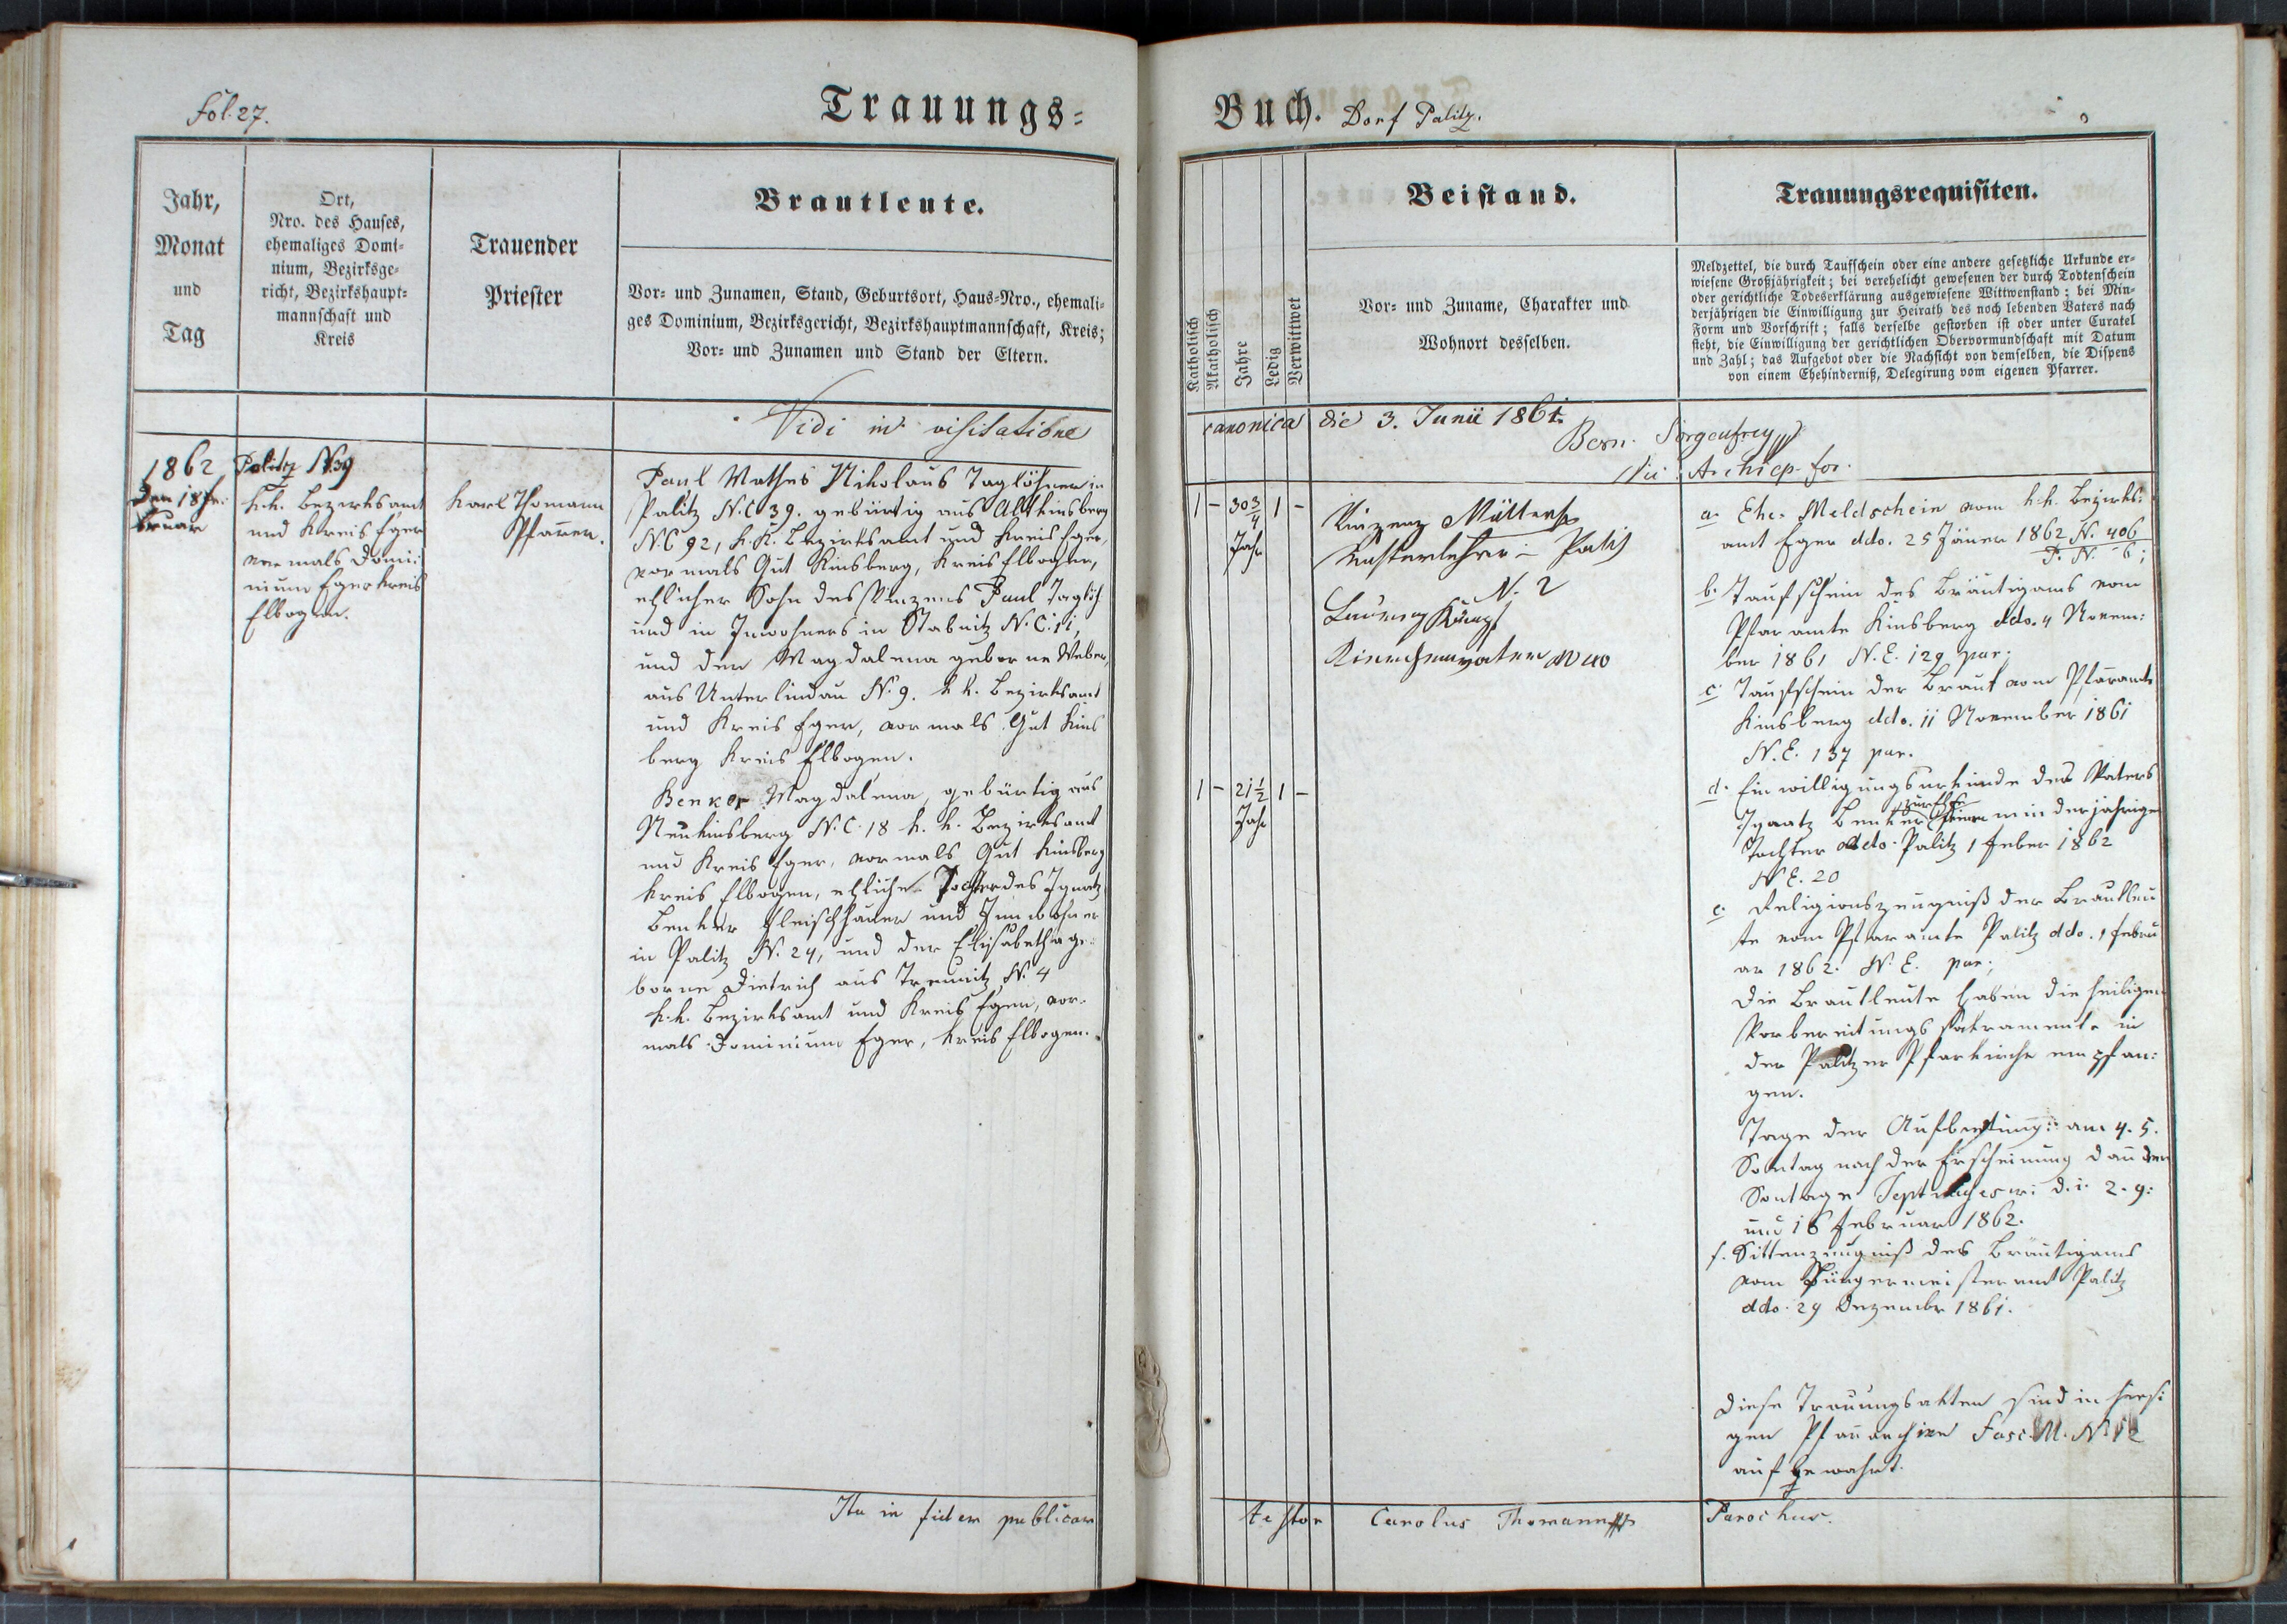 fol. 27.
Trauungs-
Jahr,
Monat
und
Tag
Ort,
Nro. des Hauses,
ehemaliges Domi-
nium, Bezirksge-
richt, Bezirkshaupt-
mannschaft und
Kreis
Trauender
Priester
Brautleute.
Vor- und Zunamen, Stand, Geburtsort, Haus-Nro., ehemali-
ges Dominium, Bezirksgericht, Bezirkshauptmannschaft, Kreis;
Vor- und Zunamen und Stand der Eltern.
Vidi in visitatione
1862
den 18 Fe-
bruar
Palitz N. 39
k.k. Bezirksamt
und Kreis Eger
vormals Domi-
nium Eger Kreis
Elbogen.
Karl Thomann
Pfarrer.
Paul Mathes Nikolaus Taglöhner in
Palitz N.C 39. gebürtig aus Altkinsberg
N.C 92, k.k. Bezirksamt und Kreis Eger,
vormals Gut Kinsberg, Kreis Elbogen,
ehlicher Sohn des Vinzens Paul Taglöh.
und in Inwohners in Stabnitz N.C. 11,
und der Magdalena geborne Weber,
aus Unterlindau N. 9. k.k. Bezirksamt
und Kreis Eger, vormals Gut Kins
berg Kreis Elbogen.
Benker Magdalena, gebürtig aus
Neukinsberg N.C. 18 k.k. Bezirksamt
und Kreis Eger, vormals Gut Kinsberg
Kreis Elbogen, ehliche Tochter des Ignatz
Benker Fleischhauer und Innwohner
in Palitz N. 24, und der Elisabetha ge-
borne Dietrich aus Treunitz N. 4
k.k. Bezirksamt und Kreis Eger, vor-
mals Dominium Eger, Kreis Elbogen.
Ita in fidem publicam
Buch. Dorf Palitz.
Katholisch
Akatholisch
Jahre
Ledig
Verwittwet
Beistand.
Vor- und Zuname, Charakter und
Wohnort desselben.
Trauungsrequisiten.
Meldzettel, die durch Taufschein oder eine andere gesetzliche Urkunde er-
wiesene Großjährigkeit; bei verehelicht gewesenen der durch Todtenschein
oder gerichtliche Todeserklärung ausgewiesene Wittwenstand; bei Min-
derjährigen die Einwilligung zur Heirath des noch lebenden Vaters nach
Form und Vorschrift; falls derselbe gestorben ist oder unter Curatel
steht, die Einwilligung der gerichtlichen Obervormundschaft mit Datum
und Zahl; das Aufgebot oder die Nachsicht von demselben, die Dispens
von einem Ehehinderniß, Delegirung vom eigenen Pfarrer.
canonica die 3. Junii 1861.
Bern. Sorgenfrey
Archiep. for.
1 - 30 3/4 1 -
Jahr
Vinzenz Müller
Musterlehrer in Palitz
N. 2
Kirchenvater N 40
1 - 21 1/2 1 -
Jahr
a. Ehe-Meldschein vom k.k. Bezirks-
amt Eger ddo. 25 Jäner 1862 N. 406
P. N. 6;
b. Taufschein des Bräutigams vom
Pfaramte Kinsberg ddo. 4 Novem-
ber 1861 N.E. 129 par.
c. Taufschein der Braut vom Pfaramte
Kinsberg ddo. 11 November 1861
N.E. 137 par.
d. Einwilligungsurkunde des Vaters
Ignatz Benker minderjährige
Tochter ddo. Palitz 1 Feber 1862
N.E. 20
e. Religionszeugniß der Brautleu
te vom Pfaramte Palitz ddo. 1 Febru
ar 1862. N.E. par;
Die Brautleute haben die heiligen
Vorbereitungssakramente in
der Palitzer Pfarkirche empfan-
gen.
Tage der Aufbietung: am 4. 5.
Sontag nach der Erscheinung dann den
Sontage Septuages: d.i. 2. 9.
und 16 Februar 1862.
f. Sittenzeugniß des Bräutigams
vom Bürgermeisteramt Palitz
ddo. 29 Dezember 1861.
Diese Trauungsakten sind in hiesi
gen Pfararchive Fasc. M. N. 12
aufbewahrt.
testor Carolus Thomann Parochus.